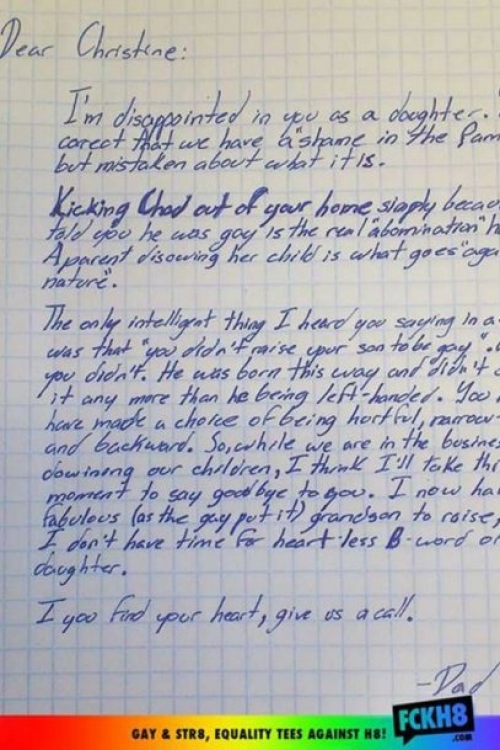 Dear Christine:
I'm disappointed in you as a daughter.
corect that we have a "shame in the Fam
but mistaken about what it is.
Kicking Chad out of your home simply becau
told you he was gay is the real "abomination" h
A parent disowing her child is what goes "aga
nature".
The only intelligent thing I heard you saying in a
was that "you didn't raise your son to be gay".
you didn't. He was born this way and didn't
it any more than he being left-handed. You
have made a choice of being hurtful, narrow-
and backward. So, while we are in the busines
dowinong our children, I think I'll take thi
moment to say goodbye to you. I now ha
fabulous (as the gay put it) grandson to raise,
I don't have time for heart-less B-word o
daughter.
I you find your heart, give us a call.
-Dad
GAY & STR8, EQUALITY TEES AGAINST H8!
FCKH8
.COM